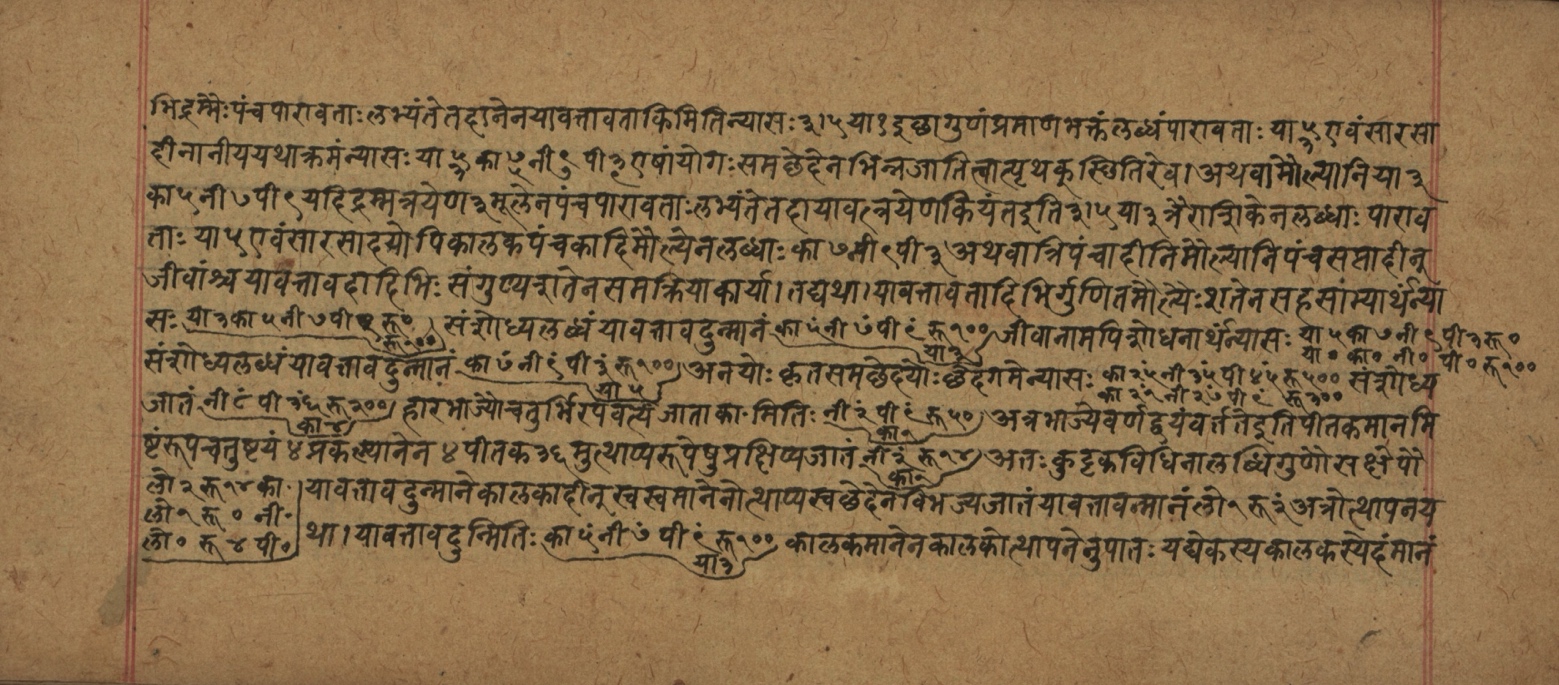 भिद्रम्मैः पंच पारावताः लभ्यंते तदानेन यावत्तावता किमिति न्यासः ३।५ या१ इच्छागुणं प्रमाणभक्तं लब्धं पारावताः या ५/३ एवं सारसा
दीनानीय यथाक्रमं न्यासः या ५/३ का ७/५ नी ९/७ पी ३/९ एषां योगः समच्छेदेन भिन्नजातित्वात्पृथक् स्थितिरेव। अथवा मौल्यानि या ३
का ५ नी ७ पी ९ यदि द्रम्मत्रयेण ३ मूलेन पंच पारावताः लभ्यंते तदा यावत्त्रयेण कियंत इति ३।५ या ३ त्रैराशिकेन लब्धाः पाराव
ताः या ५ एवं सारसादयोपि कालकपंचकादिमौल्येन लब्धाः का ७ नी ९ पी ३ अथवा त्रिपंचादीनि मौल्यानि पंचसप्तादीन्
जीवांश्च यावत्तावदादिभिः संगुण्य शतेन समक्रिया कार्या। तद्यथा। यावत्तावतादिभिर्गुणितमौल्यैः शतेन सह साम्यार्थं न्या
सः या ३ का ५ नी ७ पी ९ रू ० रू १०० संशोध्य लब्धं यावत्तावदुन्मानं का ५ं नी ७ं पी ९ं रू १०० या ३ जीवानामपि शोधनार्थं न्यासः या ५ का ७ नी ९ पी ३ रू ० या ० का ० नी ० पी ० रू १००
संशोध्य लब्धं यावत्तावदुन्मानं का ७ं नी ९ं पी ३ं रू १०० या ५ अनयोः कृतसमच्छेदयोः छेदगमे न्यासः का २५ं नी ३५ं पी ४५ं रू ५०० का २१ं नी २७ं पी ९ं रू ३०० संशोध्य
जातं नी ८ं पी ३६ं रू २०० का ४ हारभाज्यौ चतुर्भिरपवर्त्य जाता का॰मितिः नी २ं पी ९ं रू ५० का १ अत्र भाज्ये वर्णद्वयं वर्त्तते इति पीतकमानमि
ष्टं रूपचतुष्टयं ४ प्रकल्प्यानेन ४ पीतक ३६ मुत्थाप्य रूपेषु प्रक्षिप्य जातं नी २ं रू १४ का १ अतः कुट्टकविधिना लब्धिगुणौ सक्षेपौ
लो २ं रू १४ का॰ यावत्तावदुन्माने कालकादीन् स्वस्वमानेनोत्थाप्य स्वच्छेदेन विभज्य जातं यावत्तावन्मानं लो १ रू २ं अत्रोत्थापनं य
लो १ रू ० नी॰
लो ० रू ४ पी॰ था। यावत्तावदुन्मितिः का ५ं नी ७ं पी ९ं रू १०० या ३ कालकमानेन कालकोत्थापनेनुपातः यद्येकस्य कालकस्येदं मानं